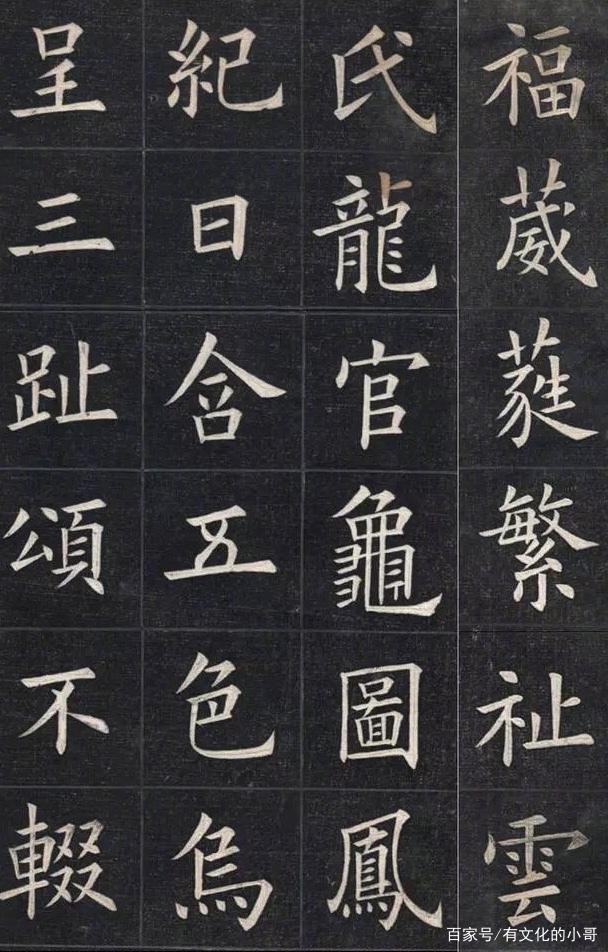 福葳蕤繁祉雲
氏龍官龜圖鳳
紀日含五色烏
呈三趾頌不輟
百家号/有文化的小哥